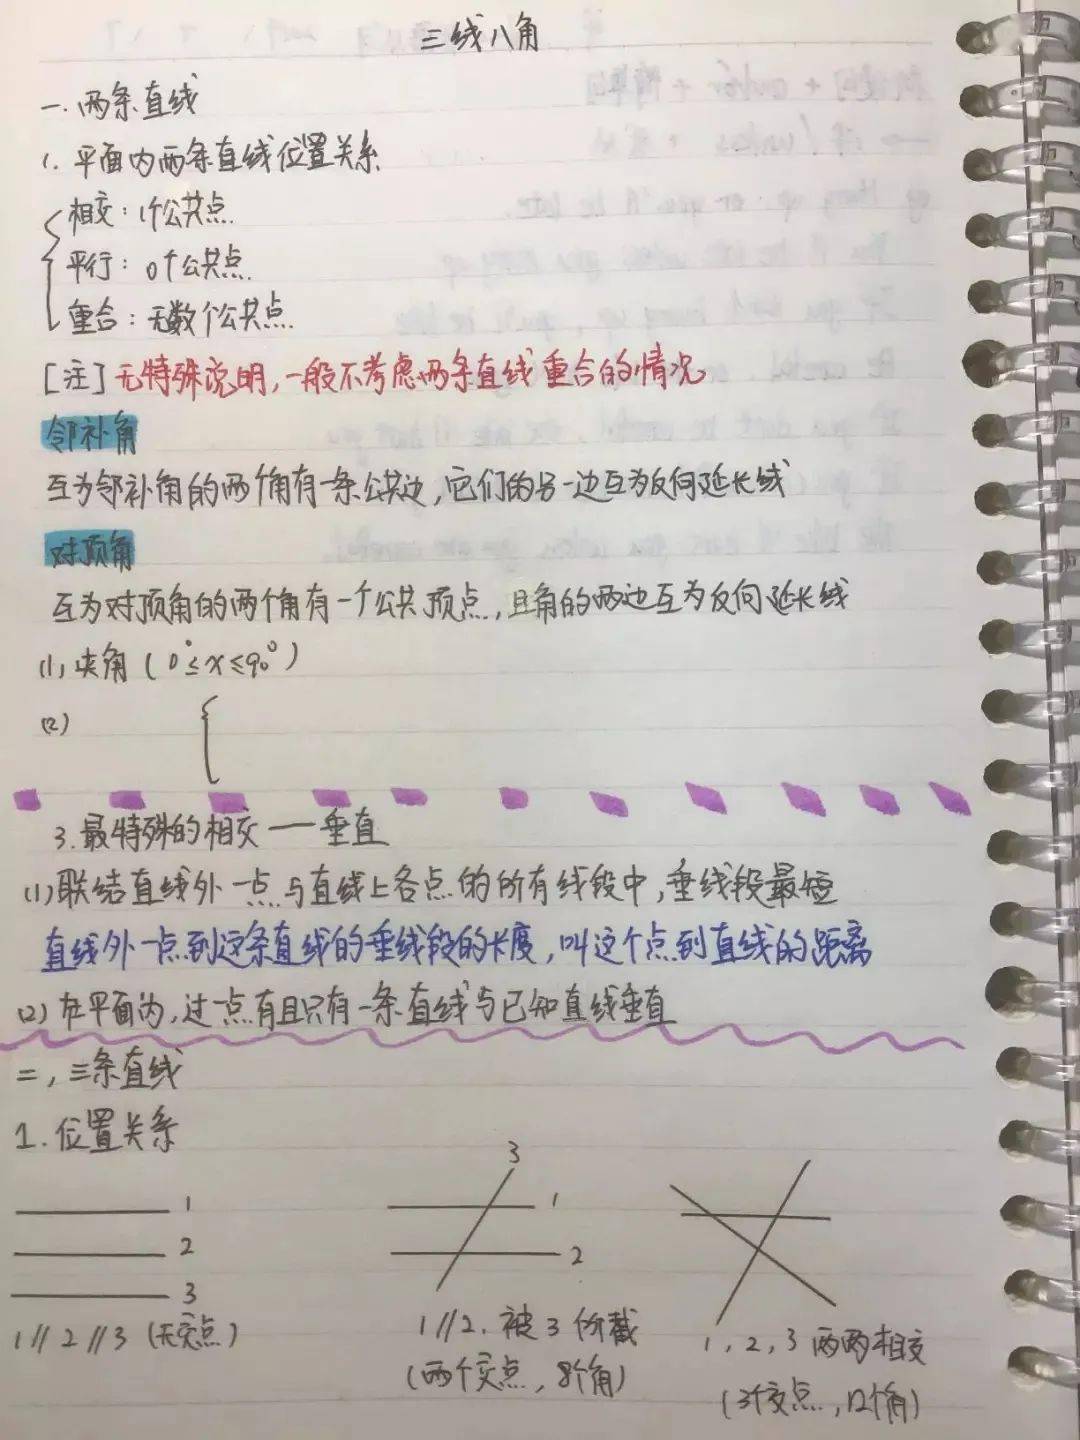 三线八角
一.两条直线
1.平面内两条直线位置关系
相交：1个公共点.
平行：0个公共点.
重合：无数个公共点.
[注]无特殊说明,一般不考虑两条直线重合的情况
邻补角
互为邻补角的两个角有一条公共边,它们的另一边互为反向延长线
对顶角
互为对顶角的两个角有一个公共顶点,且角的两边互为反向延长线
(1)夹角(0°≤x≤90°)
(2)
3.最特殊的相交——垂直
(1)联结直线外一点与直线上各点的所有线段中,垂线段最短
直线外一点到这条直线的垂线段的长度,叫这个点到直线的距离
(2)在平面内,过一点有且只有一条直线与已知直线垂直
二,三条直线
1.位置关系
1
2
3
1//2//3(无交点)
3
1
2
1//2.被3所截
(两个交点,8个角)
1,2,3两两相交
(3个交点,12个角)